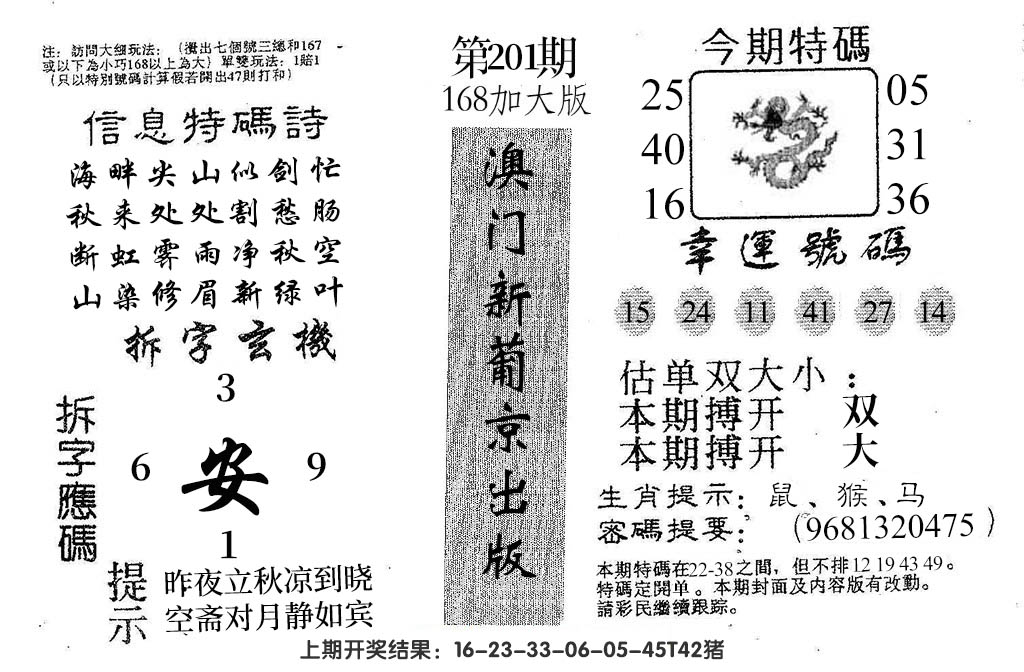 注：訪問大細玩法：（攪出七個號三總和167
或以下為小巧168以上為大）單雙玩法：1賠1
（只以特別號碼計算假若開出47則打和）
信息特碼詩
海畔尖山似劍忙
秋来处处割愁肠
断虹霁雨净秋空
山染修眉新绿叶
拆字玄機
拆字應碼
3
6 安 9
1
提示
昨夜立秋凉到晓
空斋对月静如宾
第201期
168加大版
澳门新葡京出版
今期特碼
25 05
40 31
16 36
幸運號碼
15 24 11 41 27 14
估单双大小：
本期搏开 双
本期搏开 大
生肖提示：鼠、猴、马
密碼提要：（9681320475）
本期特碼在22-38之間，但不排12 19 43 49。
特碼定開单。本期封面及内容版有改動。
請彩民繼續跟踪。
上期开奖结果：16-23-33-06-05-45T42猪